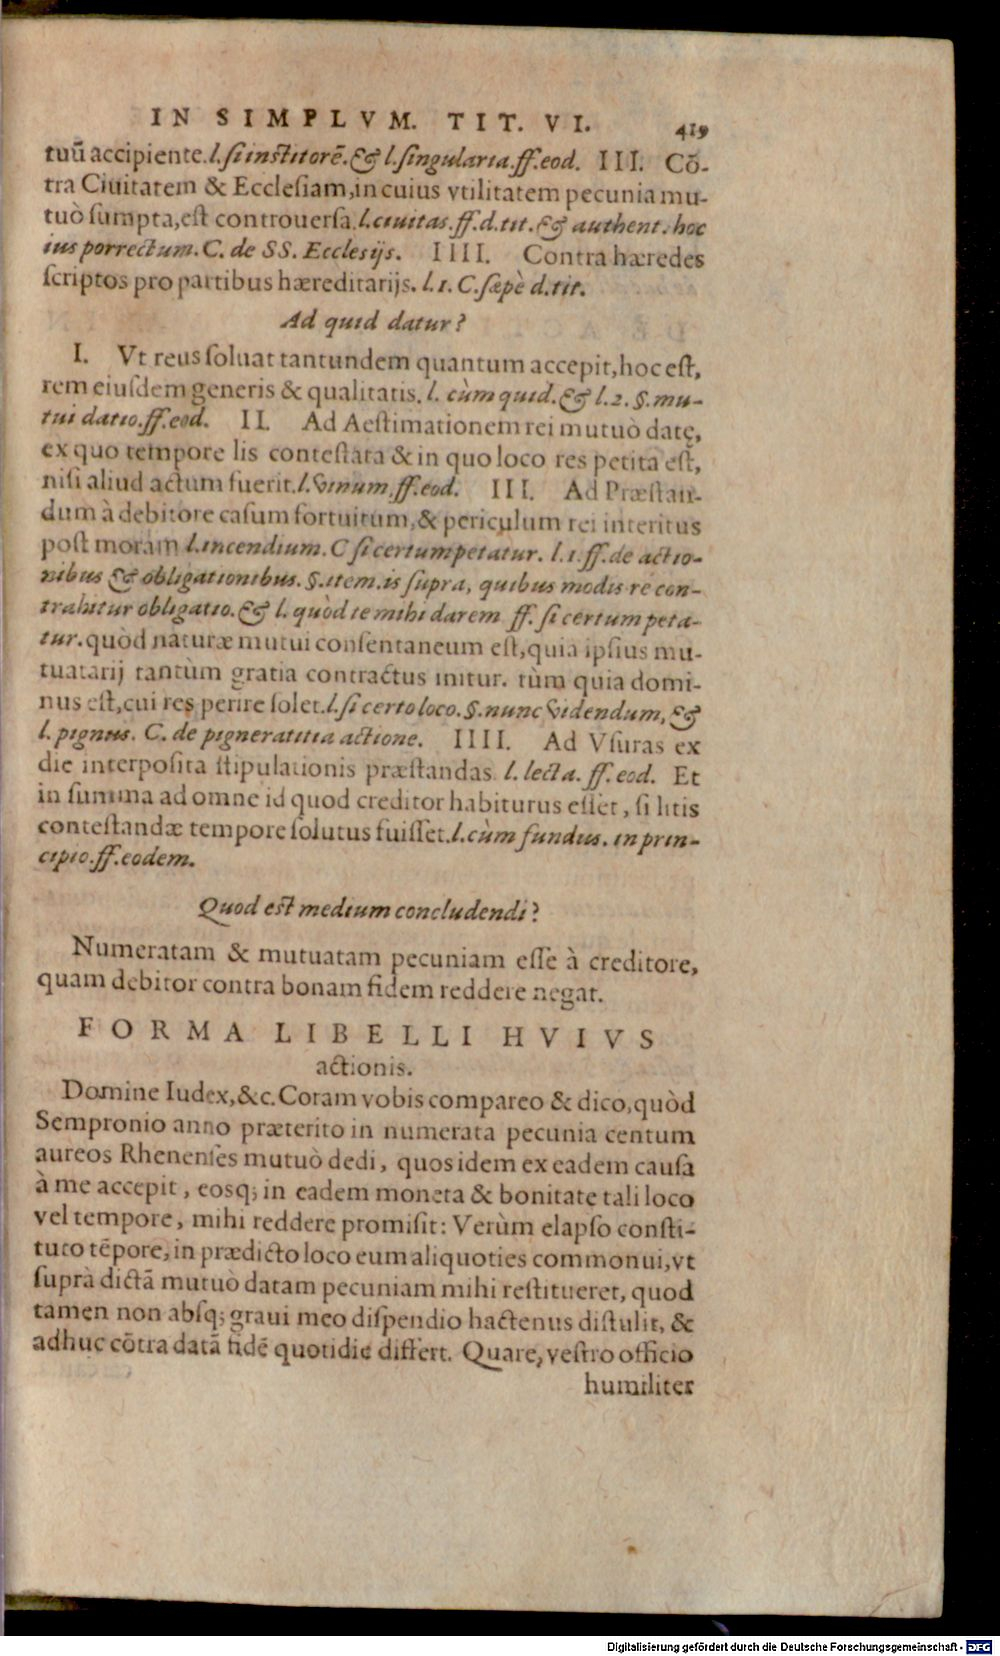 IN SIMPLVM. TIT. VI. 419
tuū accipiente. l. ſi inſtitorē. & l. ſingularia. ff. eod. III. Cō-
tra Ciuitatem & Eccleſiam, in cuius vtilitatem pecunia mu-
tuò ſumpta, eſt controuerſa. l. ciuitas. ff. d. tit. & authent. hoc
ius porrectum. C. de SS. Eccleſijs. IIII. Contra hæredes
ſcriptos pro partibus hæreditarijs. l. 1. C. ſæpè d. tit.
Ad quid datur?
I. Vt reus ſoluat tantundem quantum accepit, hoc eſt,
rem eiuſdem generis & qualitatis. l. cùm quid. & l. 2. §. mu-
tui datio. ff. eod. II. Ad Aeſtimationem rei mutuò datę,
ex quo tempore lis conteſtata & in quo loco res petita eſt,
niſi aliud actum fuerit. l. vinum. ff. eod. III. Ad Præſtan-
dum à debitore caſum fortuitum, & periculum rei interitus
poſt moram l. incendium. C ſi certum petatur. l. 1. ff. de actio-
nibus & obligationibus. §. item. is ſupra, quibus modis re con-
trahitur obligatio. & l. quòd te mihi darem ff. ſi certum peta-
tur. quòd naturæ mutui conſentaneum eſt, quia ipſius mu-
tuatarij tantùm gratia contractus initur. tùm quia domi-
nus eſt, cui res perire ſolet. l. ſi certo loco. §. nunc videndum, &
l. pignus. C. de pigneratitia actione. IIII. Ad Vſuras ex
die interpoſita ſtipulationis præſtandas. l. lecta. ff. eod. Et
in ſumma ad omne id quod creditor habiturus eſſet, ſi litis
conteſtandæ tempore ſolutus fuiſſet. l. cùm fundus. in prin-
cipio. ff. eodem.
Quod eſt medium concludendi?
Numeratam & mutuatam pecuniam eſſe à creditore,
quam debitor contra bonam fidem reddere negat.
FORMA LIBELLI HVIVS
actionis.
Domine Iudex, &c. Coram vobis compareo & dico, quòd
Sempronio anno præterito in numerata pecunia centum
aureos Rhenenſes mutuò dedi, quos idem ex eadem cauſa
à me accepit, eosq; in eadem moneta & bonitate tali loco
vel tempore, mihi reddere promiſit: Verùm elapſo conſti-
tuto tēpore, in prædicto loco eum aliquoties commonui, vt
ſuprà dictā mutuò datam pecuniam mihi reſtitueret, quod
tamen non abſq; graui meo diſpendio hactenus diſtulit, &
adhuc cōtra datā fidē quotidie differt. Quare, veſtro officio
humiliter
Digitalisierung gefördert durch die Deutsche Forschungsgemeinschaft - DFG